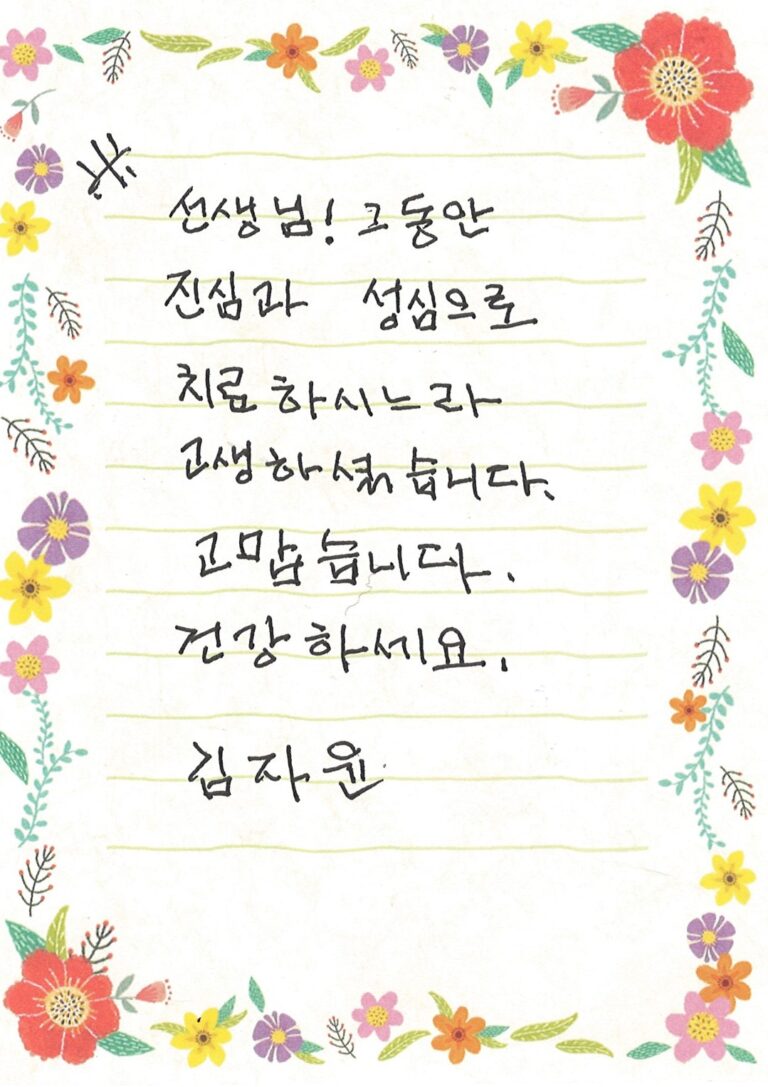 ※
선생님! 그동안
진심과 성심으로
치료하시느라
고생하셨습니다.
고맙습니다.
건강하세요.
김자윤